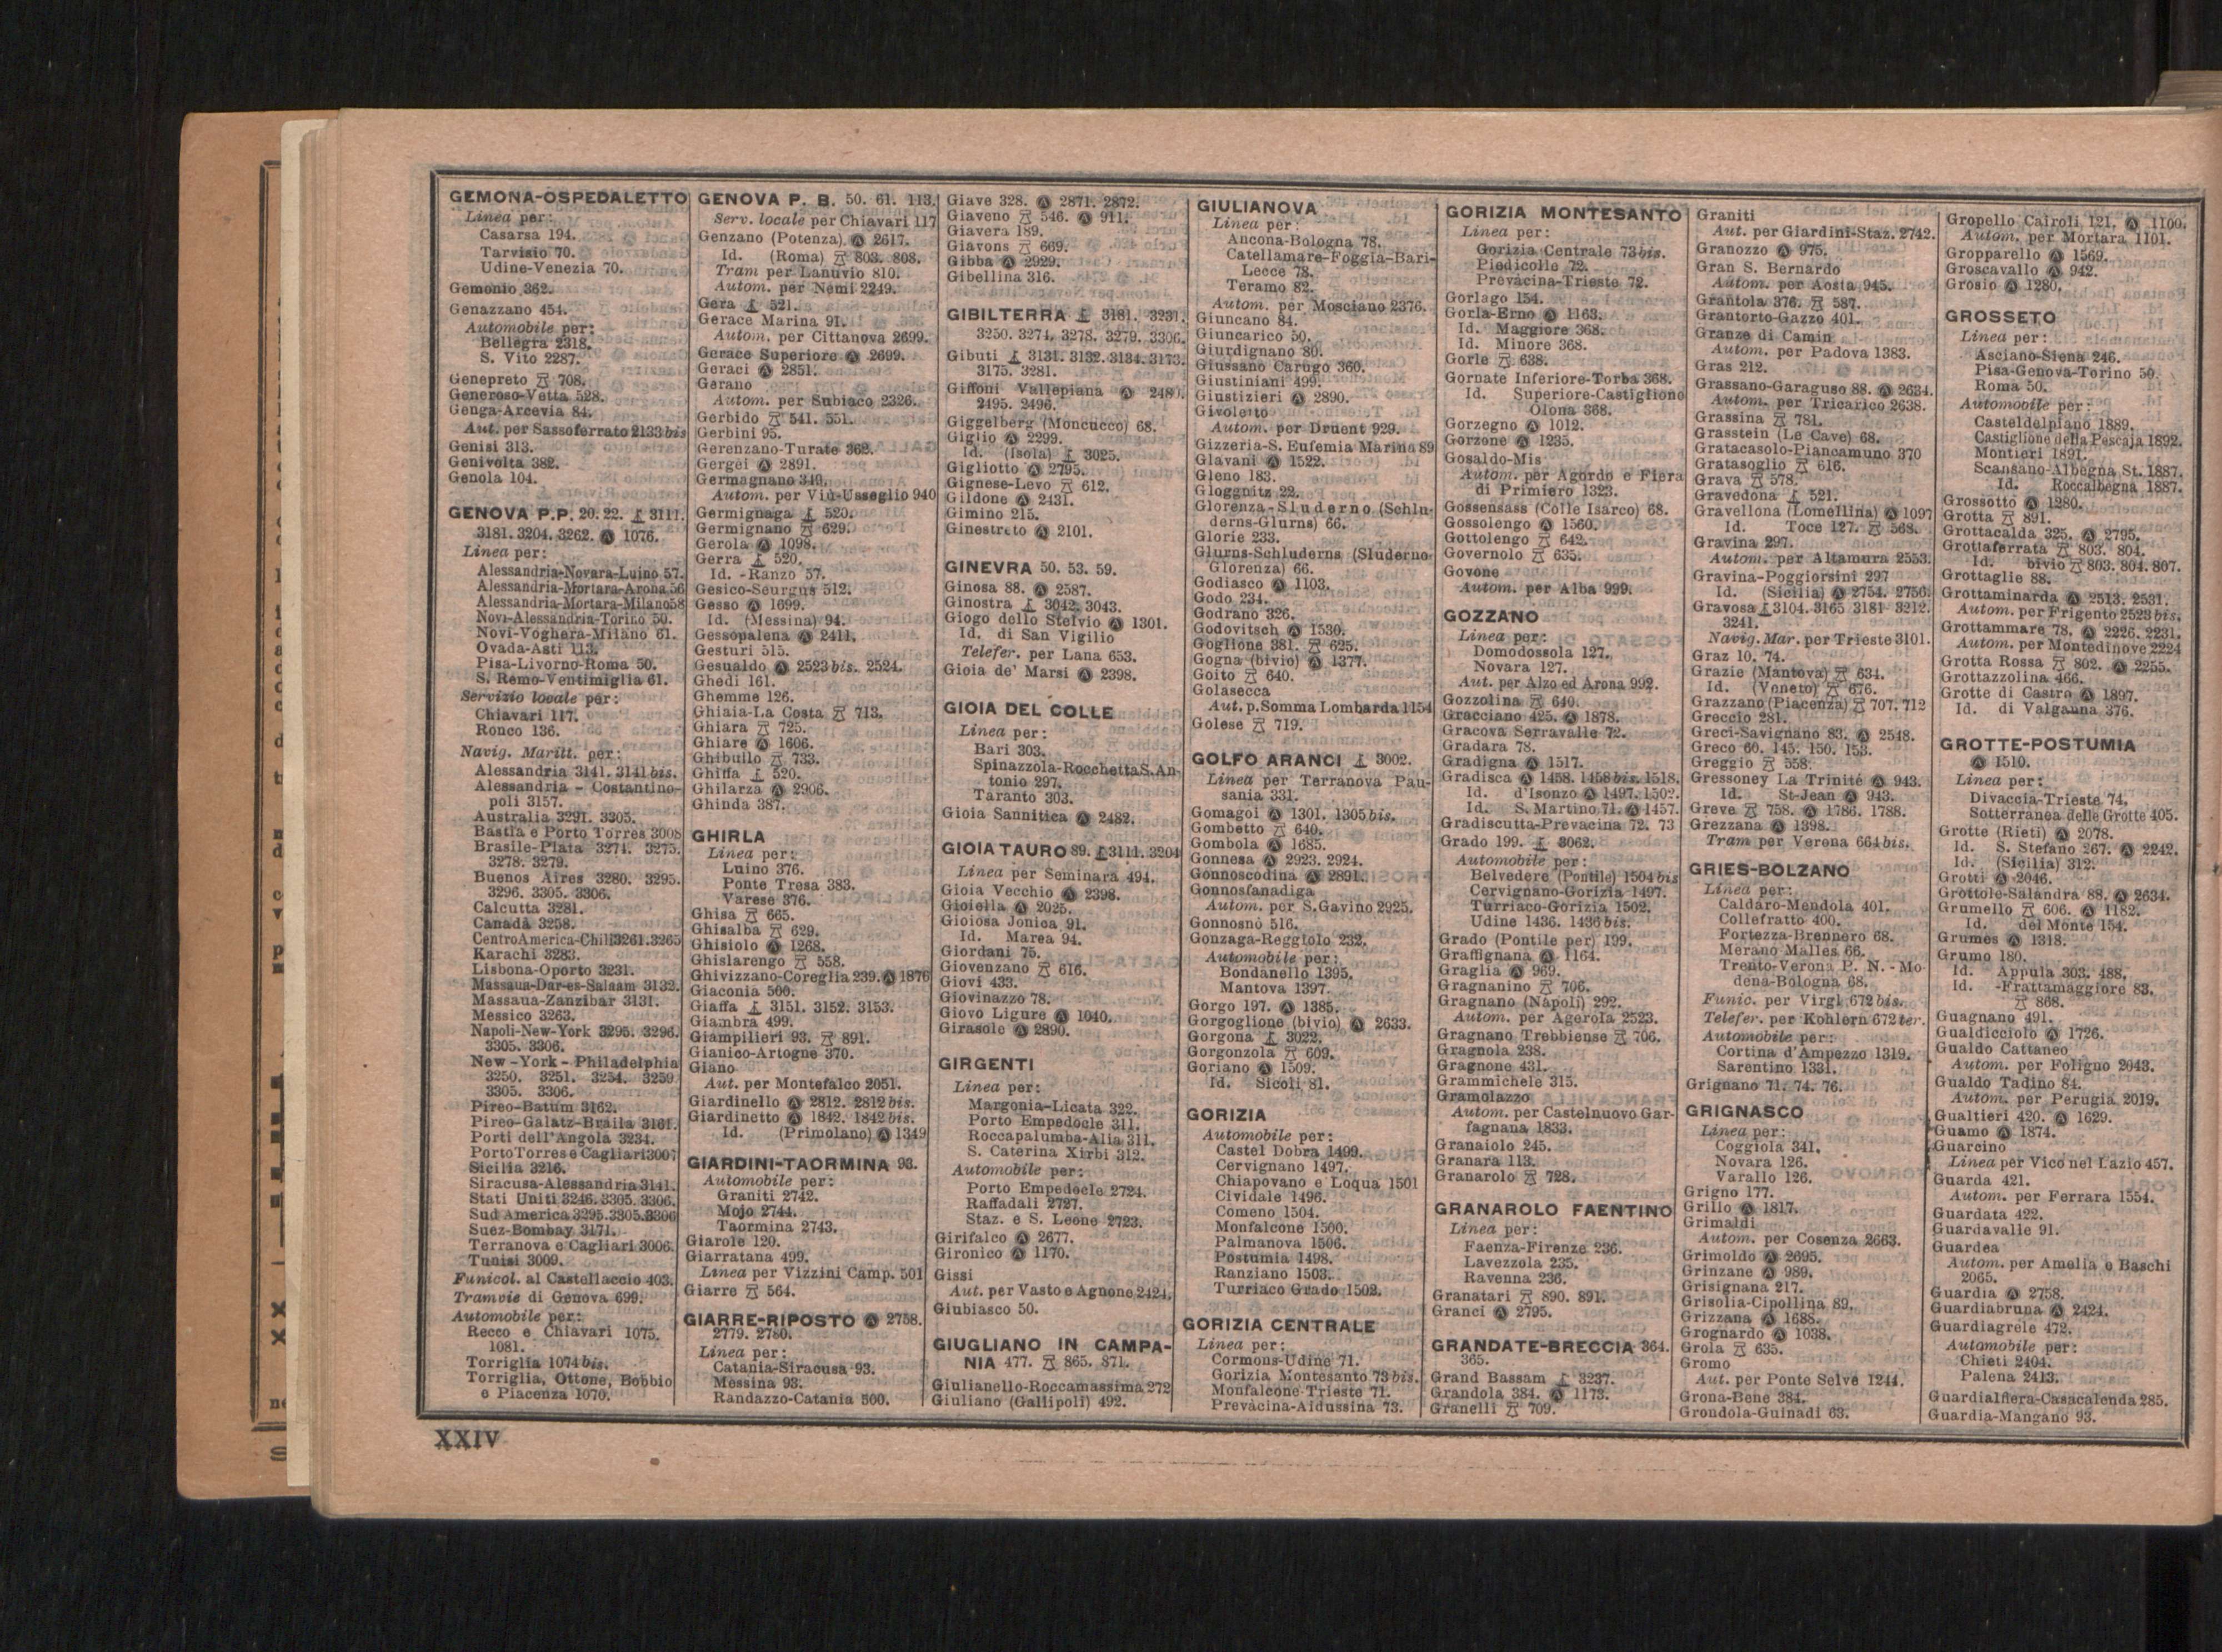 GEMONA-OSPEDALETTO
Linea per:
Casarsa 194.
Tarvisio 70.
Udine-Venezia 70.
Gemonio 362.
Genazzano 454.
Automobile per:
Bellegra 2318.
S. Vito 2287.
Genepreto 708.
Generoso-Vetta 528.
Genga-Arcevia 84.
Aut. per Sassoferrato 2133 bis
Genisi 313.
Genivolta 382.
Genola 104.
GENOVA P.P. 20. 22. 3111.
3181. 3204. 3262. Ⓐ 1076.
Linea per:
Alessandria-Novara-Luino 57.
Alessandria-Mortara-Arona 56
Alessandria-Mortara-Milano 58
Novi-Alessandria-Torino 50.
Novi-Voghera-Milano 61.
Ovada-Asti 113.
Pisa-Livorno-Roma 50.
S. Remo-Ventimiglia 61.
Servizio locale per:
Chiavari 117.
Ronco 136.
Navig. Maritt. per:
Alessandria 3141. 3141 bis.
Alessandria - Costantino-
poli 3157.
Australia 3291. 3305.
Bastia e Porto Torres 3008
Brasile-Plata 3274. 3275.
3278. 3279.
Buenos Aires 3280. 3295.
3296. 3305. 3306.
Calcutta 3281.
Canadà 3258.
Centro America-Chilì 3261. 3265
Karachi 3283.
Lisbona-Oporto 3231.
Massaua-Dar-es-Salaam 3132.
Massaua-Zanzibar 3131.
Messico 3263.
Napoli-New-York 3295. 3296.
3305. 3306.
New-York-Philadelphia
3250. 3251. 3254. 3259
3305. 3306.
Pireo-Batum 3162.
Pireo-Galatz-Braila 3161.
Porti dell'Angola 3234.
Porto Torres e Cagliari 3007
Sicilia 3216.
Siracusa-Alessandria 3141.
Stati Uniti 3246. 3305. 3306.
Sud America 3295. 3305. 3306
Suez-Bombay 3171.
Terranova e Cagliari 3006.
Tunisi 3009.
Funicol. al Castellaccio 403.
Tramvie di Genova 699.
Automobile per:
Recco e Chiavari 1075.
1081.
Torriglia 1074 bis.
Torriglia, Ottone, Bobbio
e Piacenza 1070.
GENOVA P. B. 50. 61. 113.
Serv. locale per Chiavari 117
Genzano (Potenza) Ⓐ 2617.
Id. (Roma) 803. 808.
Tram per Lanuvio 810.
Autom. per Nemi 2249.
Gera 521.
Gerace Marina 91.
Autom. per Cittanova 2699.
Gerace Superiore Ⓐ 2699.
Geraci Ⓐ 2851.
Gerano
Autom. per Subiaco 2326.
Gerbido 541. 551.
Gerbini 95.
Gerenzano-Turate 362.
Gergei Ⓐ 2891.
Germagnano 349.
Autom. per Viù-Usseglio 940
Germignaga 520.
Germignano 629.
Gerola Ⓐ 1098.
Gerra 520.
Id. -Ranzo 57.
Gesico-Seurgus 512.
Gesso Ⓐ 1699.
Id. (Messina) 94.
Gessopalena Ⓐ 2411.
Gesturi 515.
Gesualdo Ⓐ 2523 bis. 2524.
Ghedi 161.
Ghemme 126.
Ghiaia-La Costa 713.
Ghiara 725.
Ghiare Ⓐ 1606.
Ghibullo 733.
Ghiffa 520.
Ghilarza Ⓐ 2906.
Ghinda 387.
GHIRLA
Linea per:
Luino 376.
Ponte Tresa 383.
Varese 376.
Ghisa 665.
Ghisalba 629.
Ghisiolo Ⓐ 1268.
Ghislarengo 558.
Ghivizzano-Coreglia 239. Ⓐ 1876
Giaconia 500.
Giaffa 3151. 3152. 3153.
Giambra 499.
Giampilieri 93. 891.
Gianico-Artogne 370.
Giano
Aut. per Montefalco 2051.
Giardinello Ⓐ 2812. 2812 bis.
Giardinetto Ⓐ 1842. 1842 bis.
Id. (Primolano) Ⓐ 1349
GIARDINI-TAORMINA 93.
Automobile per:
Graniti 2742.
Mojo 2744.
Taormina 2743.
Giarole 120.
Giarratana 499.
Linea per Vizzini Camp. 501
Giarre 564.
GIARRE-RIPOSTO Ⓐ 2758.
2779. 2780.
Linea per:
Catania-Siracusa 93.
Messina 93.
Randazzo-Catania 500.
Giave 328. Ⓐ 2871. 2872.
Giaveno 546. Ⓐ 911.
Giavera 189.
Giavons 669.
Gibba Ⓐ 2929.
Gibellina 316.
GIBILTERRA 3181. 3231.
3250. 3274. 3278. 3279. 3306.
Gibuti 3131. 3132. 3134. 3173.
3175. 3281.
Giffoni Vallepiana Ⓐ 2480.
2495. 2496.
Giggelberg (Moncucco) 68.
Giglio Ⓐ 2299.
Id. (Isola) 3025.
Gigliotto Ⓐ 2795.
Gignese-Levo 612.
Gildone Ⓐ 2431.
Gimino 215.
Ginestreto Ⓐ 2101.
GINEVRA 50. 53. 59.
Ginosa 88. Ⓐ 2587.
Ginostra 3042. 3043.
Giogo dello Stelvio Ⓐ 1301.
Id. di San Vigilio
Telefer. per Lana 653.
Gioia de' Marsi Ⓐ 2398.
GIOIA DEL COLLE
Linea per:
Bari 303.
Spinazzola-Rocchetta S. An-
tonio 297.
Taranto 303.
Gioia Sannitica Ⓐ 2482.
GIOIA TAURO 89. 3111. 3204
Linea per Seminara 494.
Gioia Vecchio Ⓐ 2398.
Gioiella Ⓐ 2025.
Gioiosa Jonica 91.
Id. Marea 94.
Giordani 75.
Giovenzano 616.
Giovi 433.
Giovinazzo 78.
Giovo Ligure Ⓐ 1040.
Girasole Ⓐ 2890.
GIRGENTI
Linea per:
Margonia-Licata 322.
Porto Empedocle 311.
Roccapalumba-Alia 311.
S. Caterina Xirbi 312.
Automobile per:
Porto Empedocle 2724.
Raffadali 2727.
Staz. e S. Leone 2723.
Girifalco Ⓐ 2677.
Gironico Ⓐ 1170.
Gissi
Aut. per Vasto e Agnone 2424.
Giubiasco 50.
GIUGLIANO IN CAMPA-
NIA 477. 865. 871.
Giulianello-Roccamassima 272
Giuliano (Gallipoli) 492.
GIULIANOVA
Linea per:
Ancona-Bologna 78.
Catellamare-Foggia-Bari-
Lecce 78.
Teramo 82.
Autom. per Mosciano 2376.
Giuncano 84.
Giuncarico 50.
Giurdignano 80.
Giussano Carugo 360.
Giustiniani 499.
Giustizieri Ⓐ 2890.
Givoletto
Autom. per Druent 929.
Gizzeria-S. Eufemia Marina 89
Glavani Ⓐ 1522.
Gleno 183.
Gloggnitz 22.
Glorenza-Sluderno (Schlu-
derns-Glurns) 66.
Glorie 233.
Glurns-Schluderns (Sluderno-
Glorenza) 66.
Godiasco Ⓐ 1103.
Godo 234.
Godrano 326.
Godovitsch Ⓐ 1530.
Goglione 381. 625.
Gogna (bivio) Ⓐ 1377.
Goito 640.
Golasecca
Aut. p. Somma Lombarda 1154
Golese 719.
GOLFO ARANCI 3002.
Linea per Terranova Pau-
sania 331.
Gomagoi Ⓐ 1301. 1305 bis.
Gombetto 640.
Gombola Ⓐ 1685.
Gonnesa Ⓐ 2923. 2924.
Gonnoscodina Ⓐ 2891.
Gonnosfanadiga
Autom. per S. Gavino 2925.
Gonnosnò 516.
Gonzaga-Reggiolo 232.
Automobile per:
Bondanello 1395.
Mantova 1397.
Gorgo 197. Ⓐ 1385.
Gorgoglione (bivio) Ⓐ 2633.
Gorgona 3022.
Gorgonzola 609.
Goriano Ⓐ 1509.
Id. Sicoli 81.
GORIZIA
Automobile per:
Castel Dobra 1499.
Cervignano 1497.
Chiapovano e Loqua 1501
Cividale 1496.
Comeno 1504.
Monfalcone 1500.
Palmanova 1506.
Postumia 1498.
Ranziano 1503.
Turriaco Grado 1502.
GORIZIA CENTRALE
Linea per:
Cormons-Udine 71.
Gorizia Montesanto 73 bis.
Monfalcone Trieste 71.
Prevàcina-Aidussina 73.
GORIZIA MONTESANTO
Linea per:
Gorizia Centrale 73 bis.
Piedicolle 72.
Prevacina-Trieste 72.
Gorlago 154.
Gorla-Erno Ⓐ 1163.
Id. Maggiore 368.
Id. Minore 368.
Gorle 638.
Gornate Inferiore-Torba 368.
Id. Superiore-Castiglione
Olona 368.
Gorzegno Ⓐ 1012.
Gorzone Ⓐ 1235.
Gosaldo-Mis
Autom. per Agordo e Fiera
di Primiero 1323.
Gossensass (Colle Isarco) 68.
Gossolengo Ⓐ 1560.
Gottolengo 642.
Governolo 635.
Govone
Autom. per Alba 999.
GOZZANO
Linea per:
Domodossola 127.
Novara 127.
Aut. per Alzo ed Arona 992.
Gozzolina 640.
Gracciano 425. Ⓐ 1878.
Gracova Serravalle 72.
Gradara 78.
Gradigna Ⓐ 1517.
Gradisca Ⓐ 1458. 1458 bis. 1518.
Id. d'Isonzo Ⓐ 1497. 1502.
Id. S. Martino 71. Ⓐ 1457.
Gradiscutta-Prevacina 72. 73
Grado 199. 3062.
Automobile per:
Belvedere (Pontile) 1504 bis
Cervignano-Gorizia 1497.
Turriaco-Gorizia 1502.
Udine 1436. 1436 bis.
Grado (Pontile per) 199.
Graffignana Ⓐ 1164.
Graglia Ⓐ 969.
Gragnanino 706.
Gragnano (Napoli) 292.
Autom. per Agerola 2523.
Gragnano Trebbiense 706.
Gragnola 238.
Gragnone 431.
Grammichele 315.
Gramolazzo
Autom. per Castelnuovo Gar-
fagnana 1833.
Granaiolo 245.
Granara 113.
Granarolo 728.
GRANAROLO FAENTINO
Linea per:
Faenza-Firenze 236.
Lavezzola 235.
Ravenna 236.
Granatari 890. 891.
Granci Ⓐ 2795.
GRANDATE-BRECCIA 364.
365.
Grand Bassam 3237.
Grandola 384. Ⓐ 1173.
Granelli 709.
Graniti
Aut. per Giardini-Staz. 2742.
Granozzo Ⓐ 975.
Gran S. Bernardo
Autom. per Aosta 945.
Grantola 376. 587.
Grantorto-Gazzo 401.
Granze di Camin
Autom. per Padova 1383.
Gras 212.
Grassano-Garaguso 88. Ⓐ 2634.
Autom. per Tricarico 2638.
Grassina 781.
Grasstein (Le Cave) 68.
Gratacasolo-Piancamuno 370
Gratasoglio 616.
Grava 578.
Gravedona 521.
Gravellona (Lomellina) Ⓐ 1097
Id. Toce 127. 568.
Gravina 297.
Autom. per Altamura 2553.
Gravina-Poggiorsini 297
Id. (Sicilia) Ⓐ 2754. 2756.
Gravosa 3104. 3165 3181 3212.
3241.
Navig. Mar. per Trieste 3101.
Graz 10. 74.
Grazie (Mantova) 634.
Id. (Veneto) 676.
Grazzano (Piacenza) 707. 712
Greccio 281.
Greci-Savignano 83. Ⓐ 2548.
Greco 60. 145. 150. 153.
Greggio 558.
Gressoney La Trinité Ⓐ 943.
Id. St-Jean Ⓐ 943.
Greve 758. Ⓐ 1786. 1788.
Grezzana Ⓐ 1398.
Tram per Verona 664 bis.
GRIES-BOLZANO
Linea per:
Caldaro-Mendola 401.
Collefratto 400.
Fortezza-Brennero 68.
Merano Malles 66.
Trento-Verona P. N.-Mo-
dena-Bologna 68.
Funic. per Virgl 672 bis.
Telefer. per Kohlern 672 ter.
Automobile per:
Cortina d'Ampezzo 1319.
Sarentino 1331.
Grignano 71. 74. 76.
GRIGNASCO
Linea per:
Coggiola 341.
Novara 126.
Varallo 126.
Grigno 177.
Grillo Ⓐ 1817.
Grimaldi
Autom. per Cosenza 2663.
Grimoldo Ⓐ 2695.
Grinzane Ⓐ 989.
Grisignana 217.
Grisolia-Cipollina 89.
Grizzana Ⓐ 1688.
Grognardo Ⓐ 1038.
Grola 635.
Gromo
Aut. per Ponte Selve 1244.
Grona-Bene 384.
Grondola-Guinadi 63.
Gropello Cairoli 121. Ⓐ 1100.
Autom. per Mortara 1101.
Gropparello Ⓐ 1569.
Groscavallo Ⓐ 942.
Grosio Ⓐ 1280.
GROSSETO
Linea per:
Asciano-Siena 246.
Pisa-Genova-Torino 50.
Roma 50.
Automobile per:
Casteldelpiano 1889.
Castiglione della Pescaja 1892.
Montieri 1891.
Scansano-Albegna St. 1887.
Id. Roccalbegna 1887.
Grossotto Ⓐ 1280.
Grotta 891.
Grottacalda 325. Ⓐ 2795.
Grottaferrata 803. 804.
Id. bivio 803. 804. 807.
Grottaglie 88.
Grottaminarda Ⓐ 2513. 2531.
Autom. per Frigento 2523 bis.
Grottammare 78. Ⓐ 2226. 2231.
Autom. per Montedinove 2224
Grotta Rossa 802. Ⓐ 2255.
Grottazzolina 466.
Grotte di Castro Ⓐ 1897.
Id. di Valganna 376.
GROTTE-POSTUMIA
Ⓐ 1510.
Linea per:
Divaccia-Trieste 74.
Sotterranea delle Grotte 405.
Grotte (Rieti) Ⓐ 2078.
Id. S. Stefano 267. Ⓐ 2242.
Id. (Sicilia) 312.
Grotti Ⓐ 2046.
Grottole-Salandra 88. Ⓐ 2634.
Grumello 606. Ⓐ 1182.
Id. del Monte 154.
Grumes Ⓐ 1318.
Grumo 180.
Id. Appula 303. 488.
Id. -Frattamaggiore 83.
868.
Guagnano 491.
Gualdicciolo Ⓐ 1726.
Gualdo Cattaneo
Autom. per Foligno 2043.
Gualdo Tadino 84.
Autom. per Perugia 2019.
Gualtieri 420. Ⓐ 1629.
Guamo Ⓐ 1874.
Guarcino
Linea per Vico nel Lazio 457.
Guarda 421.
Autom. per Ferrara 1554.
Guardata 422.
Guardavalle 91.
Guardea
Autom. per Amelia e Baschi
2065.
Guardia Ⓐ 2758.
Guardiabruna Ⓐ 2424.
Guardiagrele 472.
Automobile per:
Chieti 2404.
Palena 2413.
Guardialfiera-Casacalenda 285.
Guardia-Mangano 93.
XXIV